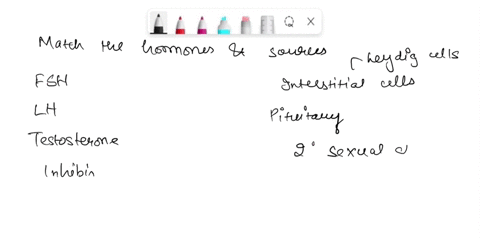 Match the hormones & sources
Leydig cells
FSH Interstitial cells
LH Pituitary
Testosterone 2° sexual c
Inhibin